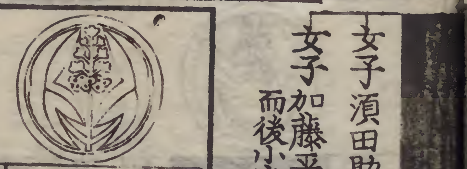 女子 須田助
女子 加藤平
而後小